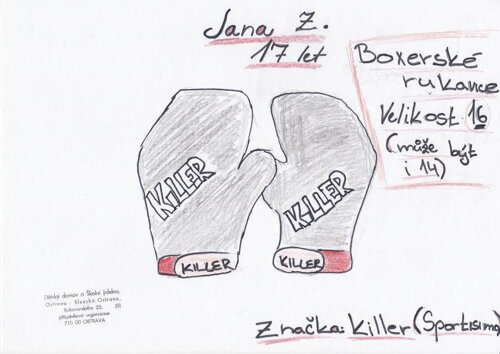 Jana Z.
17 let
Boxerské
rukavice
Velikost 16
(může být
i 14)
KILLER
KILLER
KILLER
KILLER
Dětský domov a Školní jídelna,
Ostrava - Slezská Ostrava,
Bukovanského 25,
příspěvková organizace
710 00 OSTRAVA
Značka: Killer (Sportisimo)